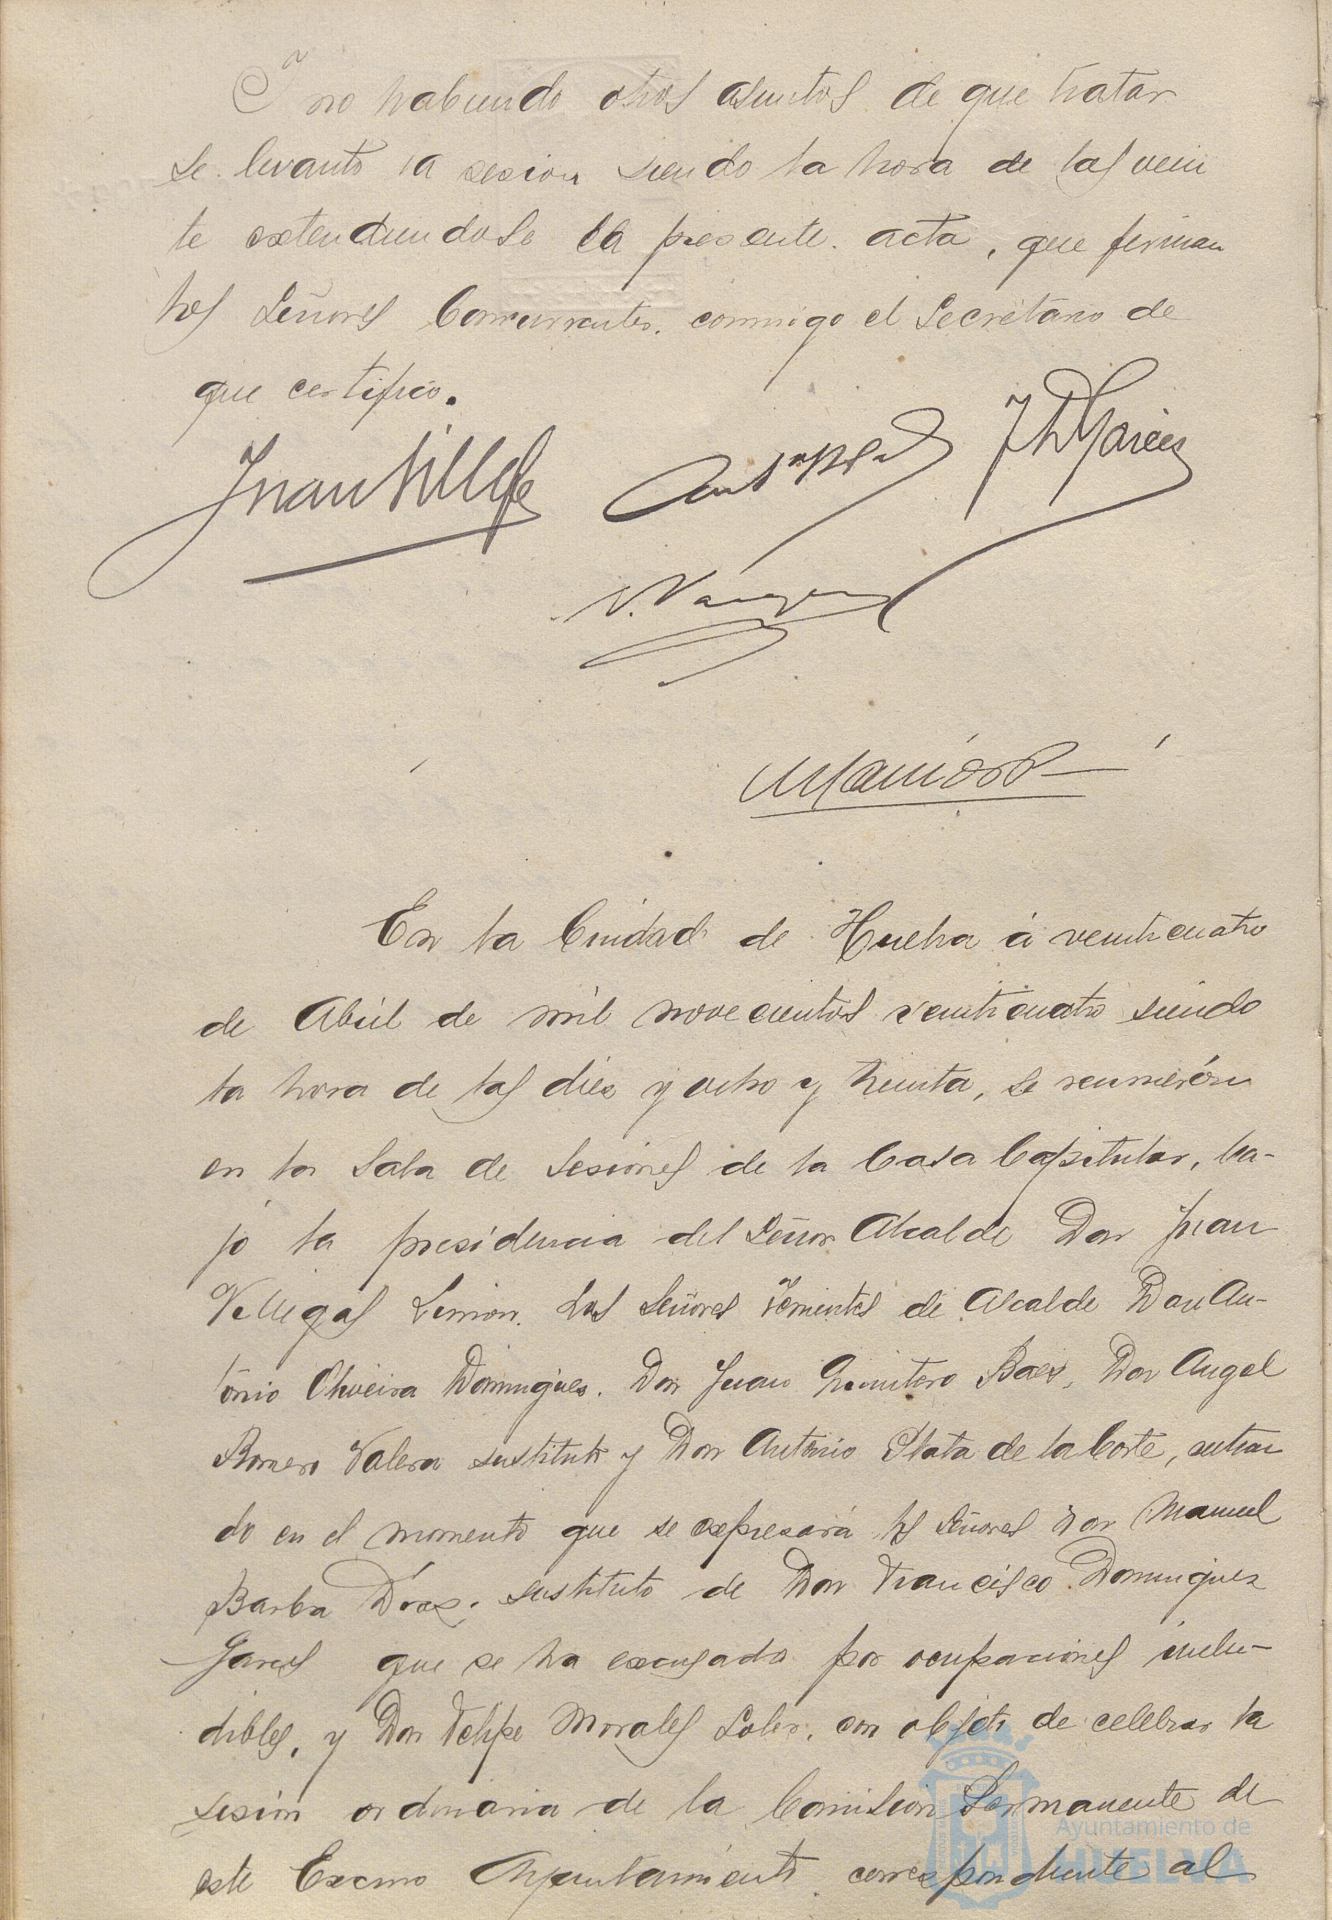 Y no habiendo otros asuntos de que tratar
se levantó la sesion siendo la hora de las vein
te extendiendose la presente acta, que firman
los Señores Concurrentes. conmigo el Secretario de
que certifico.
Juan Villegas
F D Garcés
V. Vázquez
En la Ciudad de Huelva á veinticuatro
de Abril de mil novecientos veinticuatro siendo
la hora de las diez y ocho y treinta, se reunierón
en la Sala de Sesiones de la Casa Capitular, ba-
jo la presidencia del Señor Alcalde Don Juan
Villegas Limon. Los Señores Tenientes de Alcalde Don An-
tonio Oliveira Dominguez. Don Juan Quintero Baez, Don Angel
Romero Valera sustituto y Don Antonio Plata de la Corte, entran
do en el momento que se expresará los Señores Don Manuel
Barba Diaz, sustituto de Don Francisco Dominguez
Garces que se ha escusado por ocupaciones inelu-
dibles, y Don Felipe Morales Soler, con objeto de celebrar la
sesion ordinaria de la Comision Permanente de
este Excmo Ayuntamiento correspondiente al
Ayuntamiento de
HUELVA